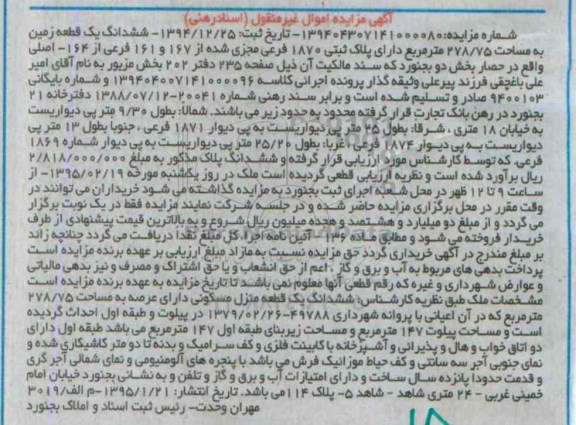 آگهی مزایده اموال غیرمنقول (اسنادرهنی)
شماره مزایده: ۱۳۹۴۰۴۳۰۷۱۴۱۰۰۰۰۸۰- تاریخ ثبت: ۱۳۹۴/۱۲/۲۵- ششدانگ یک قطعه زمین
به مساحت ۲۷۸/۷۵ مترمربع دارای پلاک ثبتی ۱۸۷۰ فرعی مجزی شده از ۱۶۷ و ۱۶۱ فرعی از ۱۶۴- اصلی
واقع در حصار بخش دو بجنورد که سند مالکیت آن ذیل صفحه ۲۳۵ دفتر ۲۰۲ بخش مزبور به نام آقای امیر
علی باغچقی فرزند پیرعلی وثیقه گذار پرونده اجرائی کلاسه ۱۳۹۴۰۴۰۰۷۱۴۱۰۰۰۰۹۶ و شماره بایگانی
۹۴۰۰۱۰۳ صادر و تسلیم شده است و برابر سند رهنی شماره ۲۰۰۴۱-۱۳۸۸/۰۷/۱۲ دفترخانه ۲۱
بجنورد در رهن بانک تجارت قرار گرفته محدود به حدود زیر می باشند. شمالا: بطول ۹/۳۰ متر پی دیواریست
به خیابان ۱۸ متری ، شرقا: بطول ۲۵ متر پی دیواریست به پی دیوار ۱۸۷۱ فرعی ، جنوبا بطول ۱۳ متر پی
دیواریست به پی دیوار ۱۸۷۴ فرعی ، غربا: بطول ۲۵/۲۰ متر پی دیواریست به پی دیوار شماره ۱۸۶۹
فرعی. که توسط کارشناس مورد ارزیابی قرار گرفته و ششدانگ پلاک مذکور به مبلغ ۲/۸۱۸/۰۰۰/۰۰۰
ریال برآورد شده است و نظریه ارزیابی قطعی گردیده است ملک در روز یکشنبه مورخه ۱۳۹۵/۰۲/۱۹- از
ساعت ۹ تا ۱۲ ظهر در محل شعبه اجرای ثبت بجنورد به مزایده گذاشته می شود خریداران می توانند در
وقت مقرر در محل برگزاری مزایده حاضر شده و در جلسه شرکت نمایند مزایده فقط در یک نوبت برگزار
می گردد و از مبلغ دو میلیارد و هشتصد و هجده میلیون ریال شروع و به بالاترین قیمت پیشنهادی از طرف
خریدار فروخته می شود و مطابق ماده ۱۳۶- آئین نامه اجرا، کل مبلغ نقدا دریافت می گردد چنانچه زاند
بر مبلغ مندرج در آگهی خریداری گردد حق مزایده نسبت به مازاد مبلغ ارزیابی بر عهده برنده مزایده است
پرداخت بدهی های مربوط به آب و برق و گاز ، اعم از حق انشعاب و یا حق اشتراک و مصرف و نیز بدهی مالیاتی
و عوارض شهرداری و غیره که رقم قطعی آنها معلوم نمی باشد تا تاریخ مزایده به عهده برنده مزایده است
مشخصات ملک طبق نظریه کارشناس: ششدانگ یک قطعه منزل مسکونی دارای عرصه به مساحت ۲۷۸/۷۵
مترمربع که در آن اعیانی با پروانه شهرداری ۴۹۷۸۸-۱۳۷۹/۰۲/۲۶ در پیلوت و طبقه اول احداث گردیده
است و مساحت پیلوت ۱۴۷ مترمربع و مساحت زیربنای طبقه اول ۱۴۷ مترمربع می باشد طبقه اول دارای
دو اتاق خواب و هال و پذیرائی و آشپزخانه با کابینت فلزی و کف سرامیک و بدنه تا دو متر کاشیکاری شده و
نمای جنوبی آجر سه سانتی و کف حیاط موزائیک فرش می باشد با پنجره های آلومنیومی و نمای شمالی آجر گری
و قدمت حدودا پانزده سال ساخت و دارای امتیازات آب و برق و گاز و تلفن و به نشانی بجنورد خیابان امام
خمینی غربی - ۲۴ متری شاهد - شاهد ۵- پلاک ۱۱۴ می باشد. تاریخ انتشار: ۱۳۹۵/۱/۲۱-م الف/۳۰۱۹
مهران وحدت- رئیس ثبت اسناد و املاک بجنورد